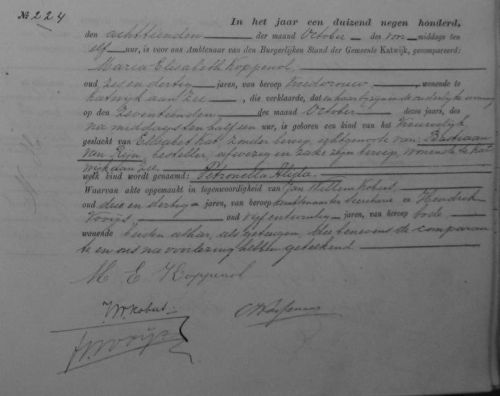 No. 224
In het jaar een duizend negen honderd,
den achttienden der maand October des voor middags ten
elf uur, is voor ons Ambtenaar van den Burgerlijken Stand der Gemeente Katwijk, gecompareerd:
Maria Elisabeth Koppenol
oud zes en dertig jaren, van beroep vroedvrouw, wonende te
Katwijk aan Zee, die verklaarde, dat
op den zeventienden der maand October dezes jaars, des
na middags ten half een uur, is geboren een kind van het vrouwelijk
geslacht van Elisabeth zonder beroep, echtgenoote van Bastiaan
van Rijn, besteller, afwezig en zake zijn beroep, wonende te Kat
wijk aan Zee
welk kind wordt genaamd: Petronella Alida.
Waarvan akte opgemaakt in tegenwoordigheid van Jan Willem Kobus
oud drie en dertig jaren, van beroep Secretarie en Hendrik
Vooijs oud vijf en twintig jaren, van beroep bode
wonende beiden alhier, als getuigen, die benevens de comparan
te en ons na voorlezing hebben geteekend.
M. E. Koppenol
J W Kobus
H Vooijs